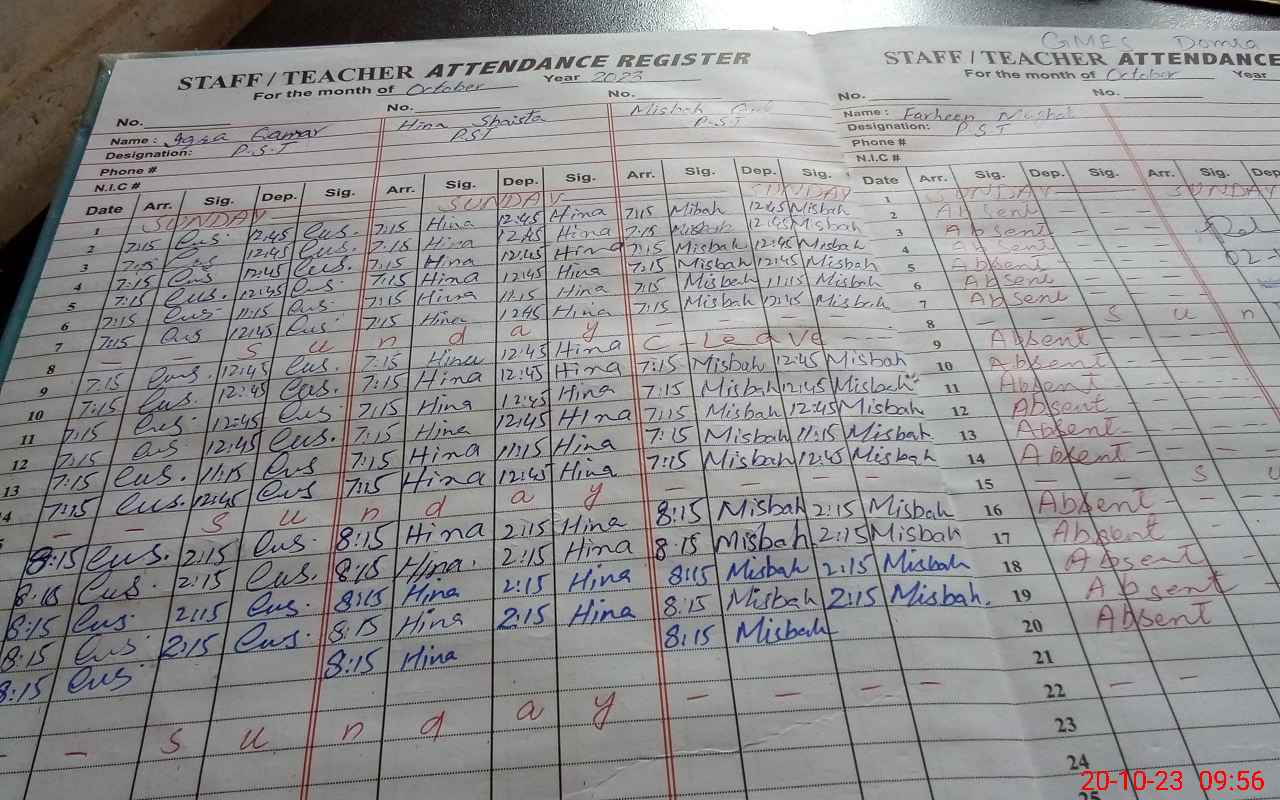 GMES Domra
STAFF / TEACHER ATTENDANCE REGISTER
For the month of October Year 2023
No. No. No.
Name: Hina Shaista Misbah
Designation: P.S.T P.S.T P.S.T
Phone #
N.I.C #
Date Arr. Sig. Dep. Sig. Arr. Sig. Dep. Sig. Arr. Sig. Dep. Sig.
1 SUNDAY SUNDAY SUNDAY
2 7:15 12:45 7:15 Hina 12:45 Hina 7:15 Mibah 12:45 Misbah
3 7:15 12:45 7:15 Hina 12:45 Hina 7:15 Misbah 12:45 Misbah
4 7:15 12:45 7:15 Hina 12:45 Hina 7:15 Misbah 12:45 Misbah
5 7:15 12:45 7:15 Hina 12:45 Hina 7:15 Misbah 12:45 Misbah
6 7:15 11:15 7:15 Hina 11:15 Hina 7:15 Misbah 11:15 Misbah
7 7:15 12:45 7:15 Hina 12:45 Hina 7:15 Misbah 12:45 Misbah
8 — — S u n d a y — — — —
9 7:15 12:45 7:15 Hina 12:45 Hina C - Leave
10 7:15 12:45 7:15 Hina 12:45 Hina 7:15 Misbah 12:45 Misbah
11 7:15 12:45 7:15 Hina 12:45 Hina 7:15 Misbah 12:45 Misbah
12 7:15 12:45 7:15 Hina 12:45 Hina 7:15 Misbah 12:45 Misbah
13 7:15 11:15 7:15 Hina 11:15 Hina 7:15 Misbah 11:15 Misbah
14 7:15 12:45 7:15 Hina 12:45 Hina 7:15 Misbah 12:45 Misbah
— — S u n d a y — — — —
8:15 2:15 8:15 Hina 2:15 Hina 8:15 Misbah 2:15 Misbah
8:15 2:15 8:15 Hina. 2:15 Hina 8:15 Misbah 2:15 Misbah
8:15 2:15 8:15 Hina 2:15 Hina 8:15 Misbah 2:15 Misbah
8:15 2:15 8:15 Hina 2:15 Hina 8:15 Misbah 2:15 Misbah.
8:15 8:15 Hina 8:15 Misbah
— — S u n d a y — — — —
STAFF / TEACHER ATTENDANCE
For the month of October Year
No. No.
Name: Farheen
Designation: P.S.T
Phone #
N.I.C #
Date Arr. Sig. Dep. Sig. Arr. Sig. Dep.
1 SUNDAY SUNDAY
2 Absent
3 Absent
4 Absent
5 Absent
6 Absent
7 Absent
8 — — — S u n
9 Absent
10 Absent
11 Absent
12 Absent
13 Absent
14 Absent
15 — — — S u
16 Absent
17 Absent
18 Absent
19 Absent
20 Absent
21
22 — —
23
24
25
20-10-23 09:56